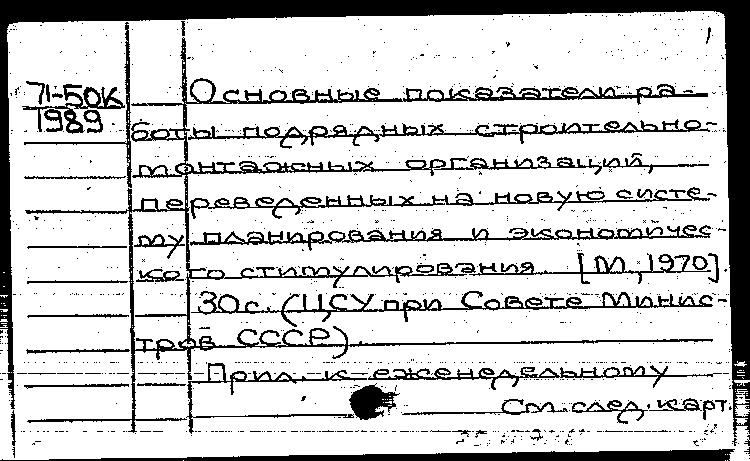 71-50К
1989
Основные показатели ра-
боты подрядных строительно-
монтажных организаций,
переведенных на новую систе-
му планирования и экономичес-
кого стимулирования [М., 1970].
30с. (ЦСУ при Совете Минис-
тров СССР).
Прил. к еженедельному
См. след. карт.